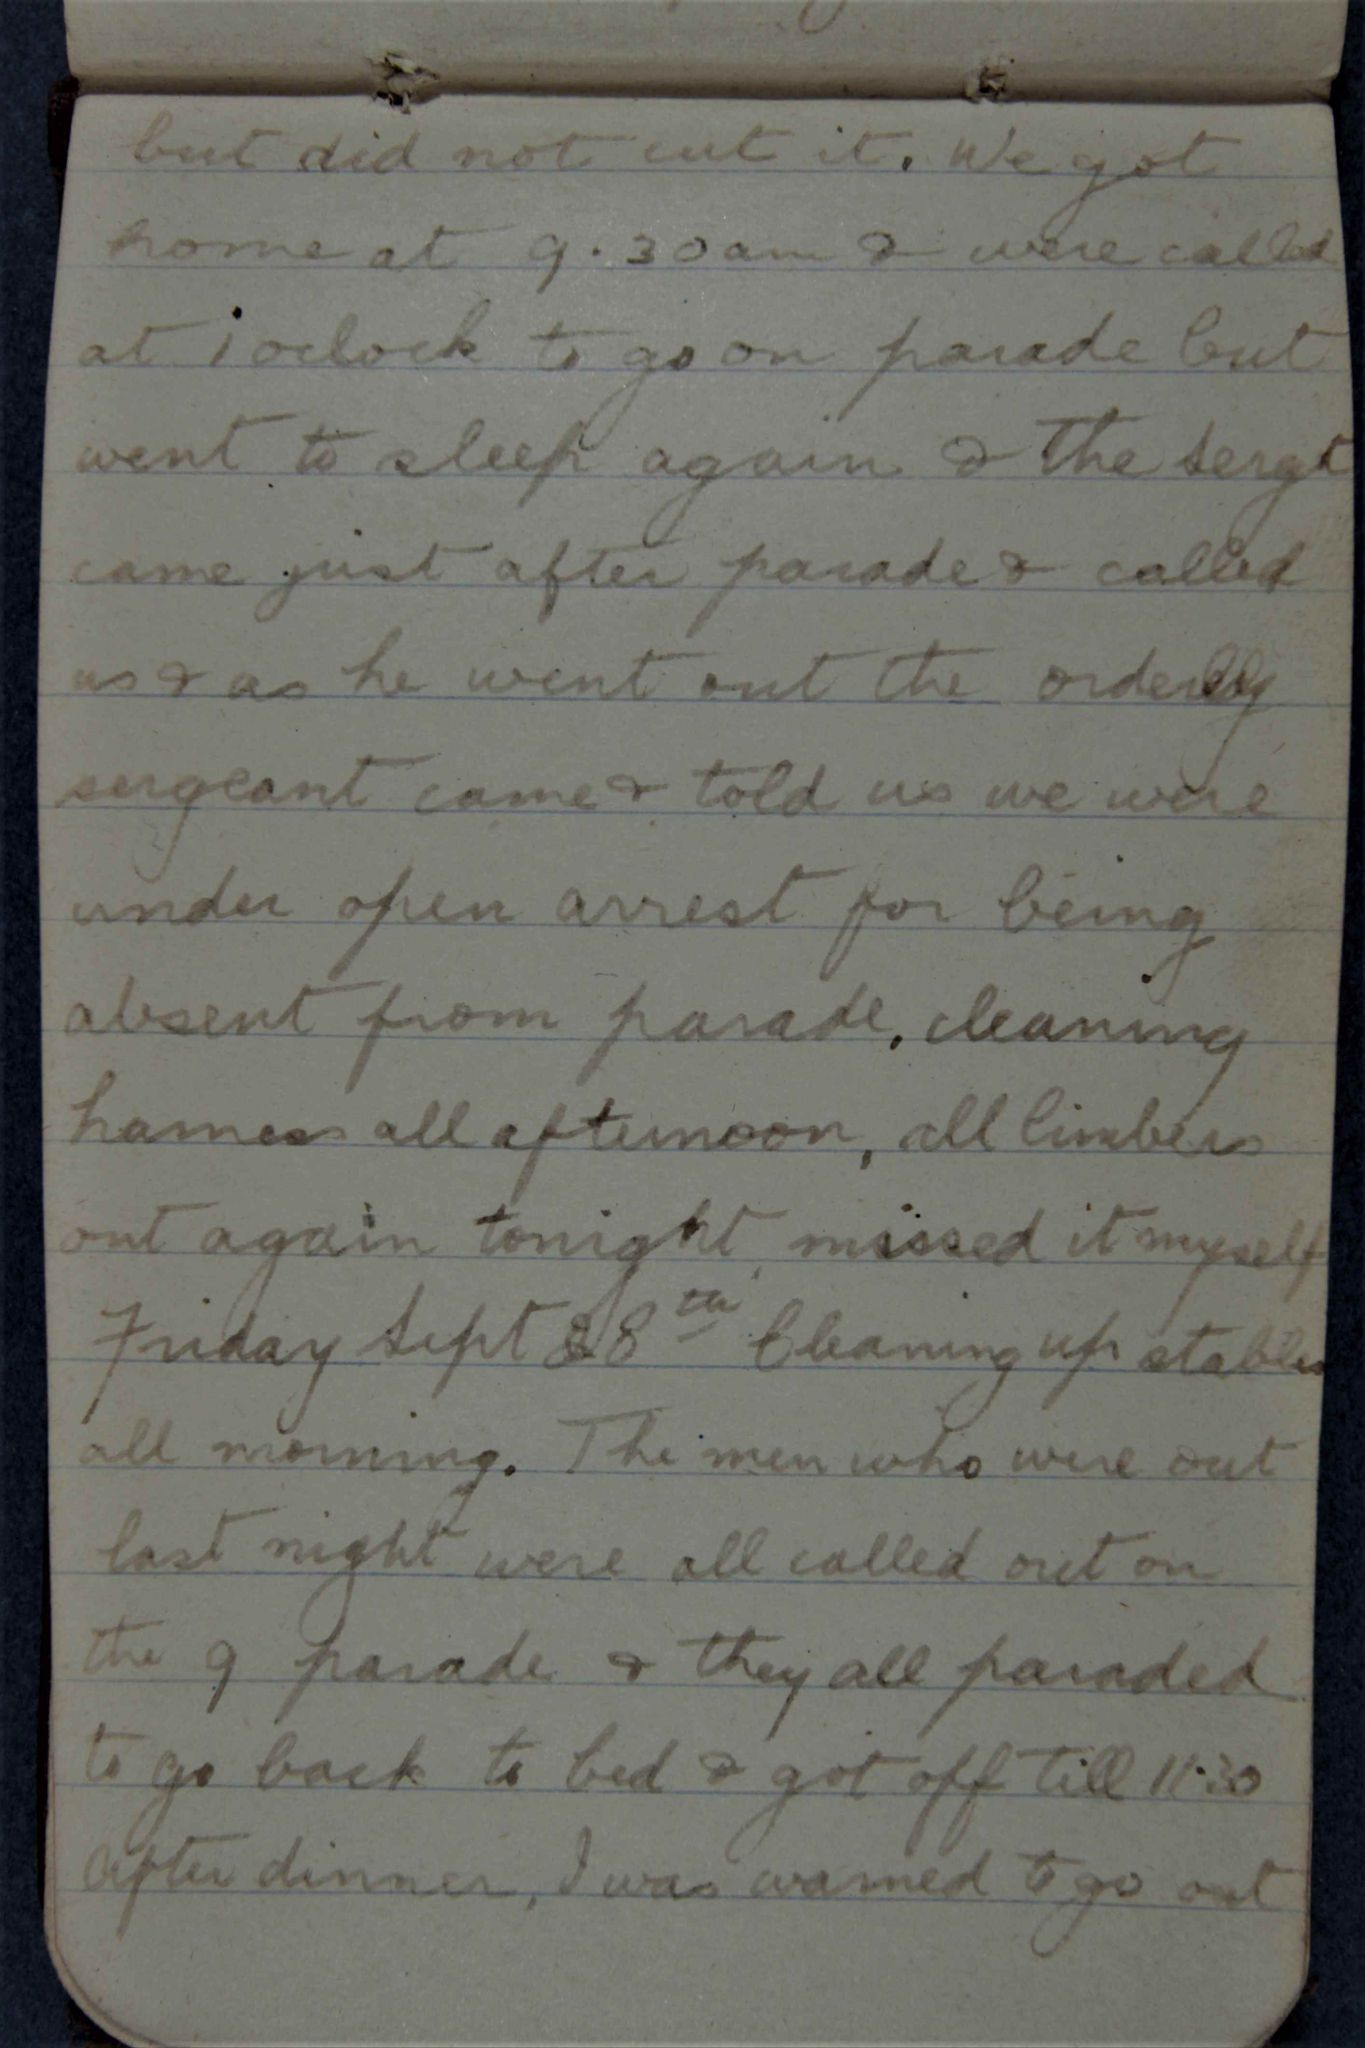 but did not cut it. We got
home at 9.30am & were called
at 1 oclock to go on parade but
went to sleep again & the Sergt
came just after parade & called
us & as he went out the orderly
sergeant came & told us we were
under open arrest for being
absent from parade. cleaning
harness all afternoon, all limbers
out again tonight missed it myself
Friday Sept 28th Cleaning up stables
all morning. The men who were out
last night were all called out on
the 9 parade & they all paraded
to go back to bed & got off till 11.30
After dinner, I was warned to go out